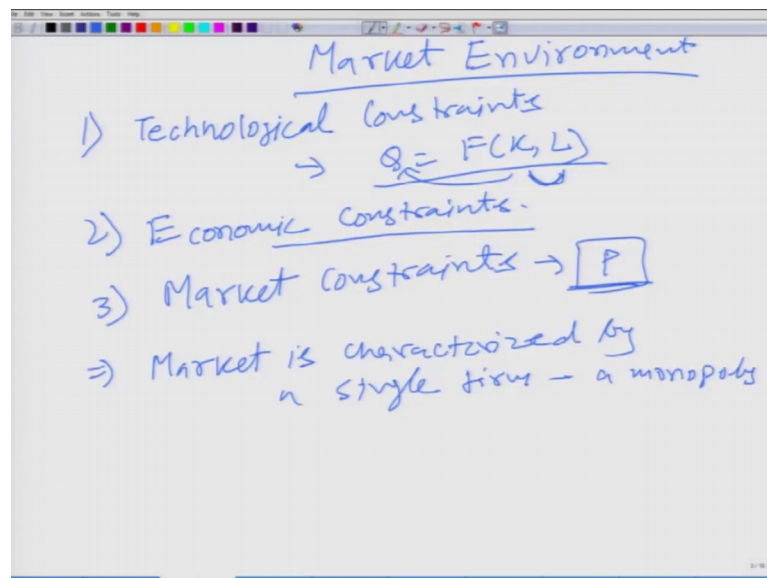 Edit View Insert Actions Tools Help
Market Environment
1) Technological Constraints
→ Q = F(K, L)
2) Economic constraints.
3) Market constraints → P
⇒ Market is characterized by
a single firm - a monopoly